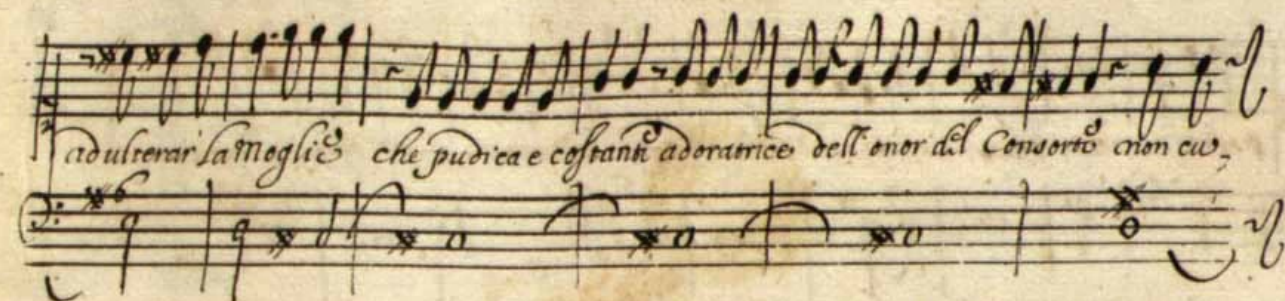 adulterar la moglie che pudica e costante adoratrice dell'onor del Consorte non cu-
6